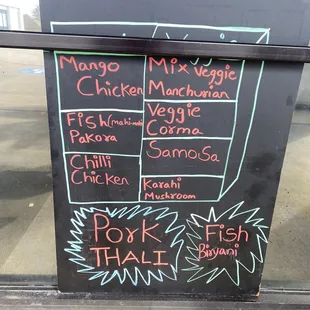 Mango
Chicken
Fish (mahi-mahi)
Pakora
Chilli
Chicken
Veggie
Mix Veggie
Manchurian
Veggie
Corma
Samosa
Karahi
Mushroom
Pork
THALI
Fish
Biryani